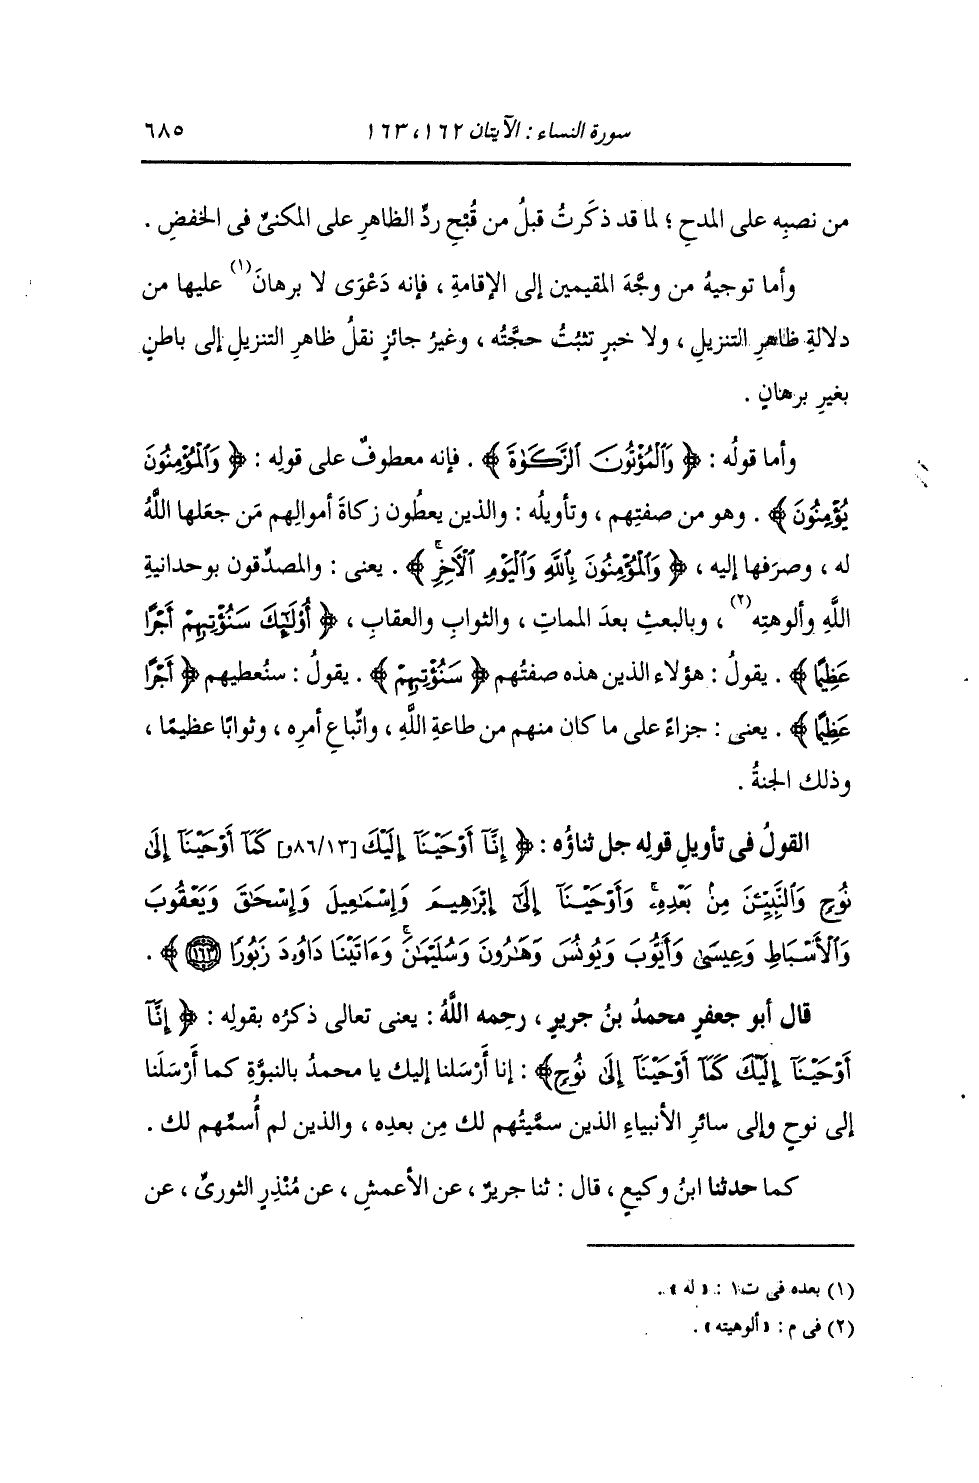 سورة النساء : الآيتان ١٦٢ ، ١٦٣ ٦٨٥
من نصبِه على المدحِ ؛ لما قد ذكَرتُ قبلُ من قُبْحِ ردِّ الظاهرِ على المكنىِّ فى الخفضِ .
وأما توجيهُ من وجَّهَ المقيمين إلى الإقامةِ ، فإنه دَعْوَى لا برهانَ(١) عليها من
دلالةِ ظاهرِ التنزيلِ ، ولا خبرٍ تثبُتُ حجَّتُه ، وغيرُ جائزٍ نقلُ ظاهرِ التنزيلِ إلى باطنٍ
بغيرِ برهانٍ .
وأما قولُه : ﴿ وَٱلْمُؤْتُونَ ٱلزَّكَوٰةَ ﴾ . فإنه معطوفٌ على قولِه : ﴿ وَٱلْمُؤْمِنُونَ
يُؤْمِنُونَ ﴾ . وهو من صفتِهم ، وتأويلُه : والذين يعطُون زكاةَ أموالِهم مَن جعَلها اللَّهُ
له ، وصرَفها إليه ، ﴿ وَٱلْمُؤْمِنُونَ بِٱللَّهِ وَٱلْيَوْمِ ٱلْآخِرِ ۚ ﴾ . يعنى : والمصدِّقون بوحدانيةِ
اللَّهِ وألوهتِه(٢) ، وبالبعثِ بعدَ المماتِ ، والثوابِ والعقابِ ، ﴿ أُوْلَـٰٓئِكَ سَنُؤْتِيهِمْ أَجْرًا
عَظِيمًا ﴾ . يقولُ : هؤلاء الذين هذه صفتُهم ﴿ سَنُؤْتِيهِمْ ﴾ . يقولُ : سنُعطيهم ﴿ أَجْرًا
عَظِيمًا ﴾ . يعنى : جزاءً على ما كان منهم من طاعةِ اللَّهِ ، واتِّباعِ أمرِه ، وثوابًا عظيمًا ،
وذلك الجنةُ .
القولُ فى تأويلِ قولِه جل ثناؤُه : ﴿ إِنَّآ أَوْحَيْنَآ إِلَيْكَ [٨٦/١٣و] كَمَآ أَوْحَيْنَآ إِلَىٰ
نُوحٍ وَٱلنَّبِيِّـۧنَ مِنۢ بَعْدِهِۦ ۚ وَأَوْحَيْنَآ إِلَىٰٓ إِبْرَٰهِيمَ وَإِسْمَـٰعِيلَ وَإِسْحَـٰقَ وَيَعْقُوبَ
وَٱلْأَسْبَاطِ وَعِيسَىٰ وَأَيُّوبَ وَيُونُسَ وَهَـٰرُونَ وَسُلَيْمَـٰنَ ۚ وَءَاتَيْنَا دَاوُۥدَ زَبُورًا ١٦٣ ﴾ .
قال أبو جعفرٍ محمدُ بنُ جريرٍ ، رحِمه اللَّهُ : يعنى تعالى ذكرُه بقولِه : ﴿ إِنَّآ
أَوْحَيْنَآ إِلَيْكَ كَمَآ أَوْحَيْنَآ إِلَىٰ نُوحٍ ﴾ : إنا أَرْسَلنا إليك يا محمدُ بالنبوَّةِ كما أَرْسَلْنا
إلى نوحٍ وإلى سائرِ الأنبياءِ الذين سمَّيتُهم لك مِن بعدِه ، والذين لم أُسمِّهم لك .
كما حدثنا ابنُ وكيعٍ ، قال : ثنا جريرٌ ، عن الأعمشِ ، عن مُنْذِرٍ الثورىِّ ، عن
(١) بعده فى ت١ : « له » .
(٢) فى م : « ألوهيته » .